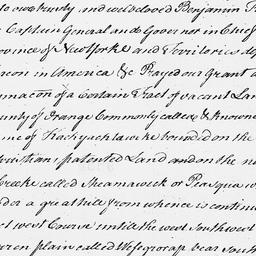 to our trusty and welbeloved Benjamin
Captain General and Governor in Chief
province of New Yorke and Territories
in America &c Prayed our Grant
a Certain Tract of vacant Land
County of Orange Commonly called & Knowne
me of Hackyackawek bounded on the
Christian patented Land and on the
Creeke called Sheamaweck or Peasqua
der a great hill from whence is continu
west Course untill the west Southwest
plain called Wesegrorap bear South